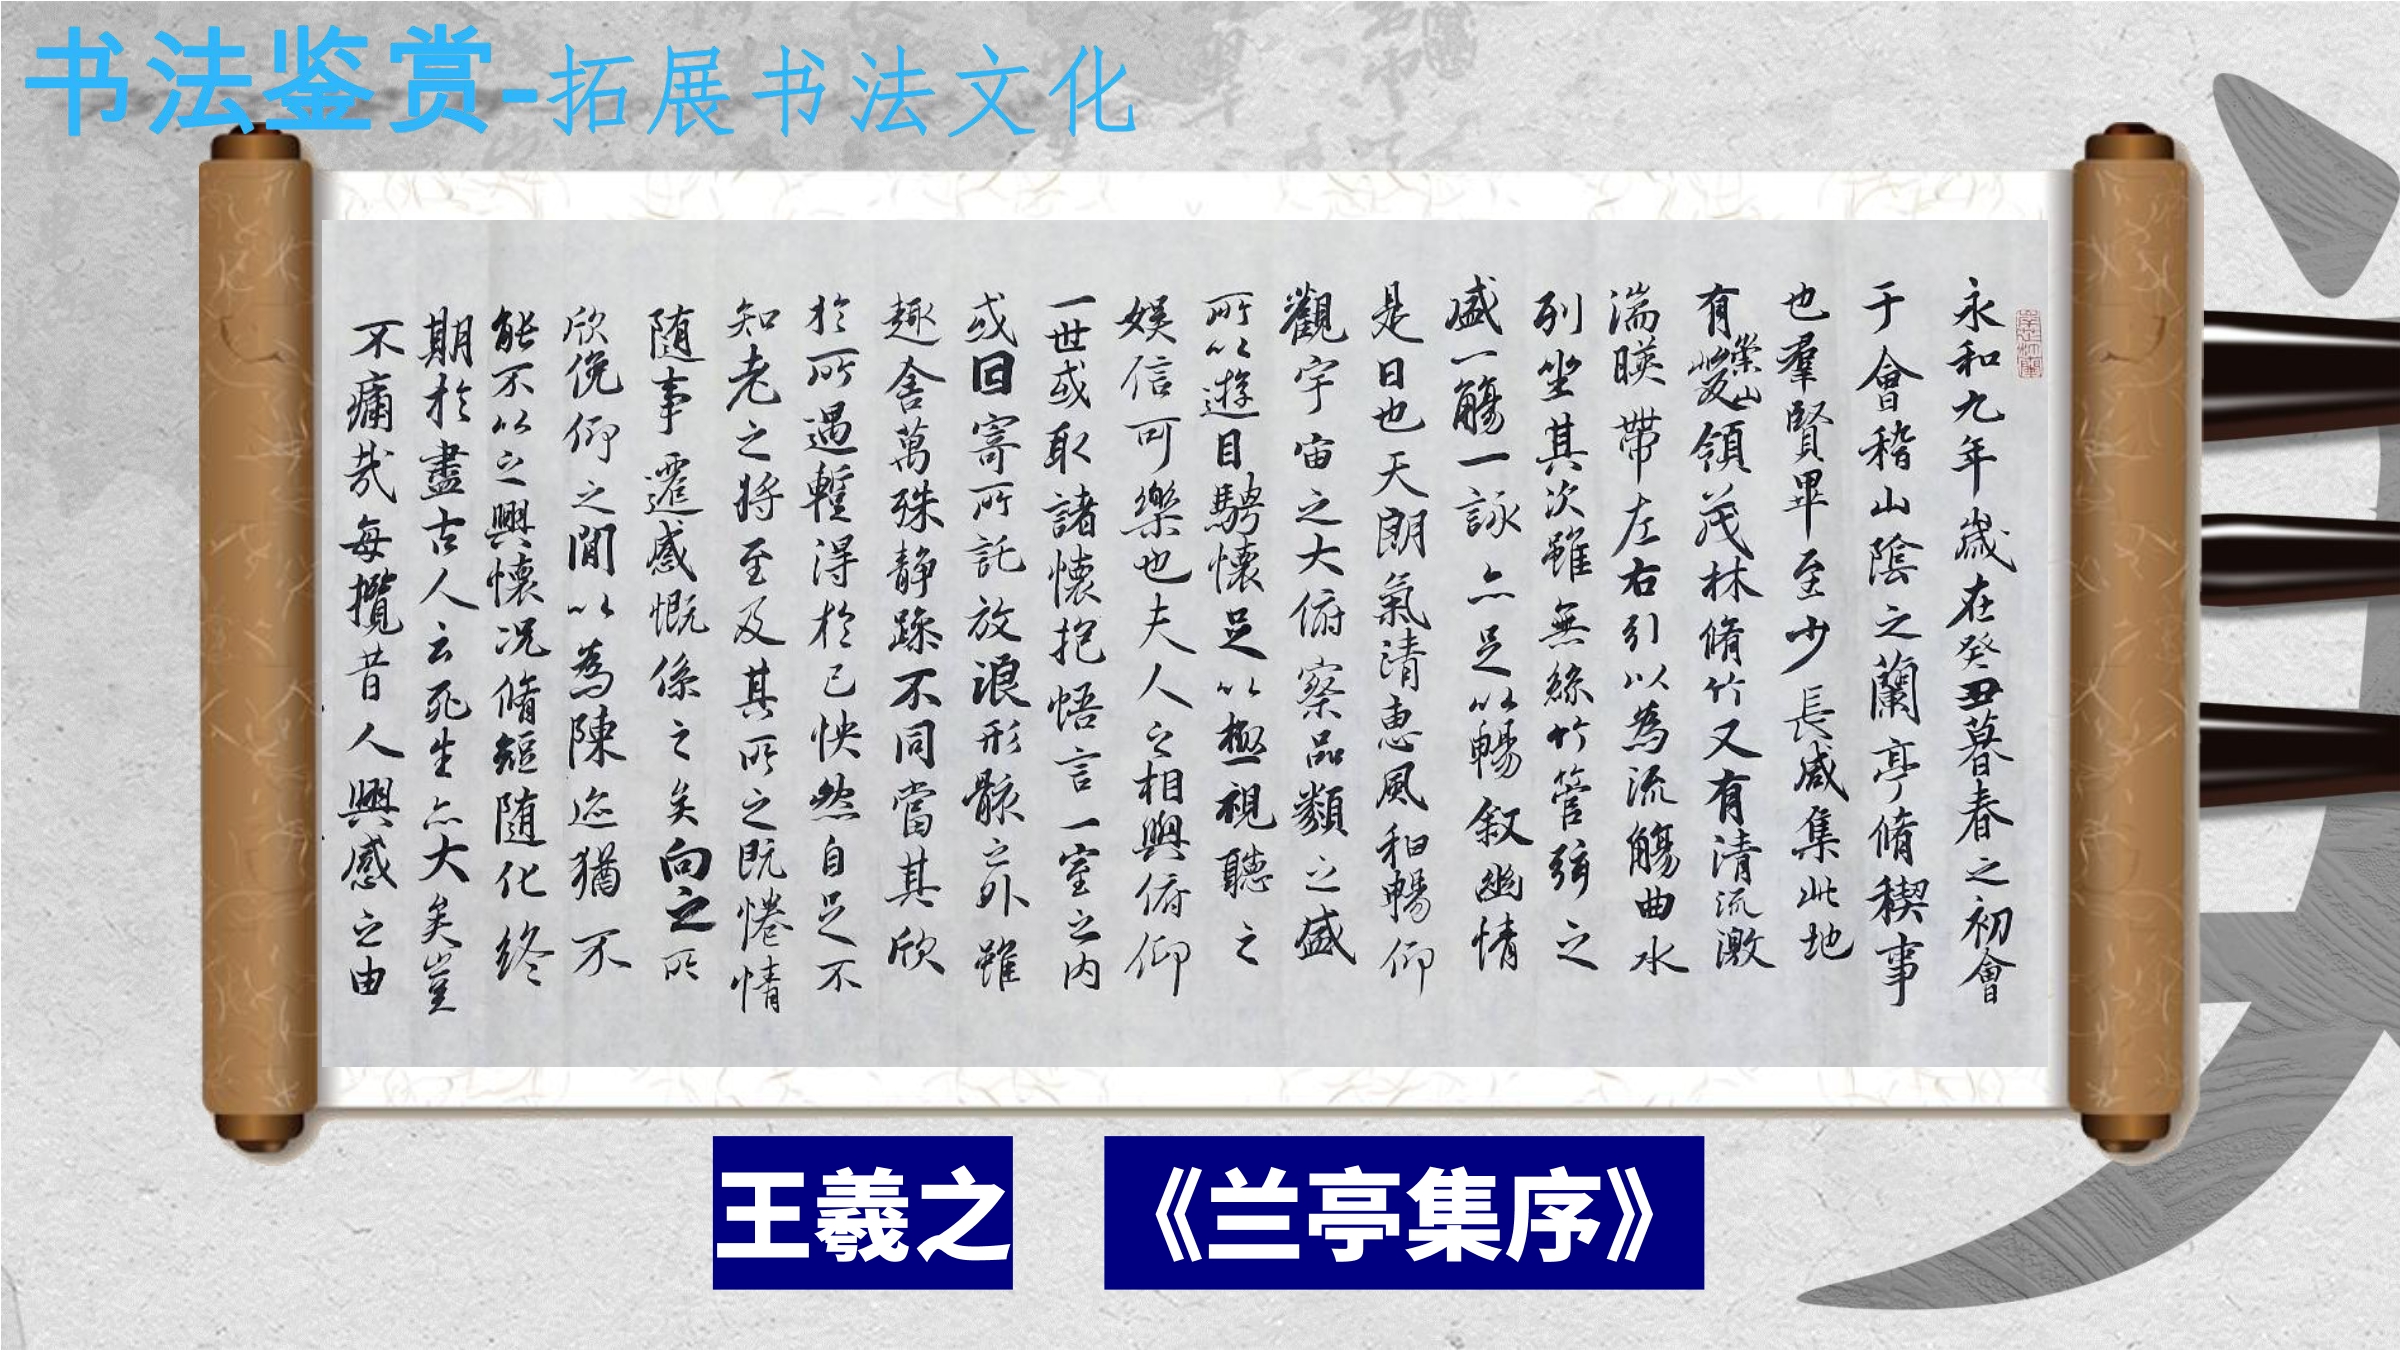 书法鉴赏-拓展书法文化
永和九年歲在癸丑暮春之初會
于會稽山陰之蘭亭脩稧事
也羣賢畢至少長咸集此地
有崇山峻領茂林脩竹又有清流激
湍暎帶左右引以為流觴曲水
列坐其次雖無絲竹管弦之
盛一觴一詠亦足以暢叙幽情
是日也天朗氣清惠風和暢仰
觀宇宙之大俯察品類之盛
所以遊目騁懷足以極視聽之
娛信可樂也夫人之相與俯仰
一世或取諸懷抱悟言一室之内
或因寄所託放浪形骸之外雖
趣舍萬殊静躁不同當其欣
於所遇暫得於己怏然自足不
知老之將至及其所之既惓情
随事遷感慨係之矣向之所
欣俛仰之閒以為陳迹猶不
能不以之興懷況脩短随化終
期於盡古人云死生亦大矣豈
不痛哉每攬昔人興感之由
王羲之 《兰亭集序》